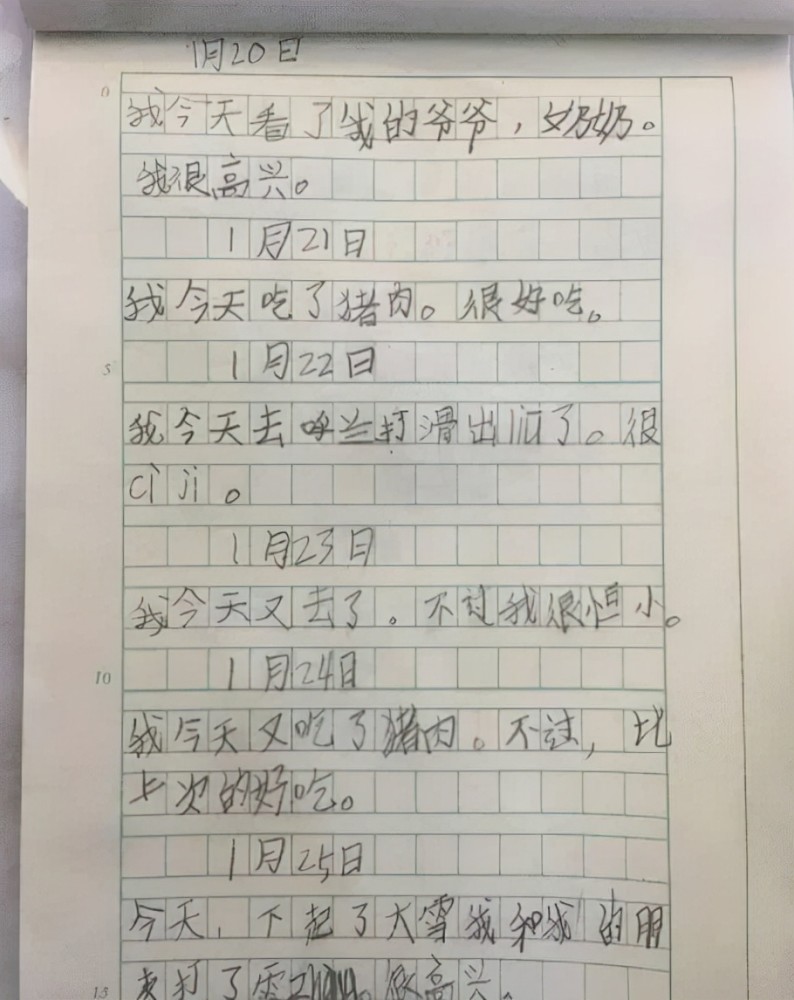 1月20日
0
我今天看了我的爷爷，奶奶。
我很高兴。
1月21日
我今天吃了猪肉。很好吃。
5
1月22日
我今天去呼兰打滑出liū了。很
cì ji。
1月23日
我今天又去了。不过我很恒小。
10
1月24日
我今天又吃了猪肉。不过，比
上次的好吃。
1月25日
今天，下起了大雪我和我的朋
友打了雪 很高兴。
15